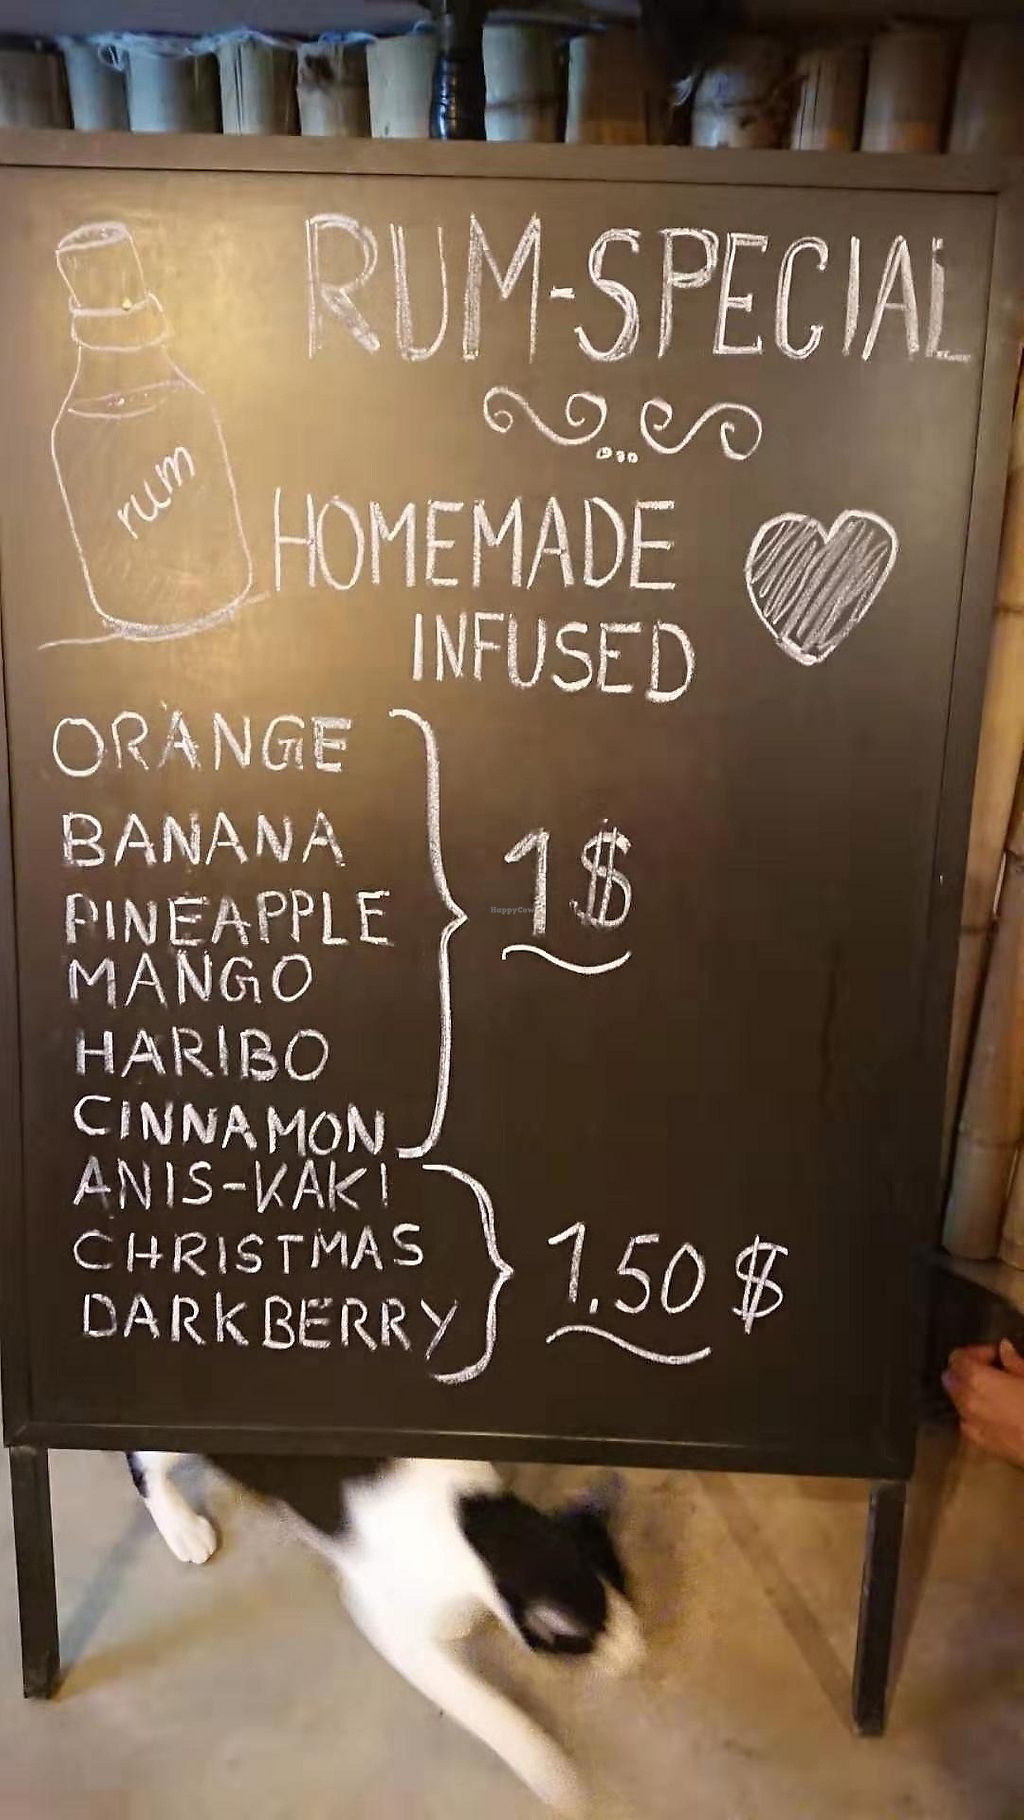 RUM-SPECIAL
rum
HOMEMADE
INFUSED
ORANGE
BANANA
PINEAPPLE
MANGO
HARIBO
CINNAMON
1$
HappyCow
ANIS-KAKI
CHRISTMAS
DARKBERRY
1.50 $